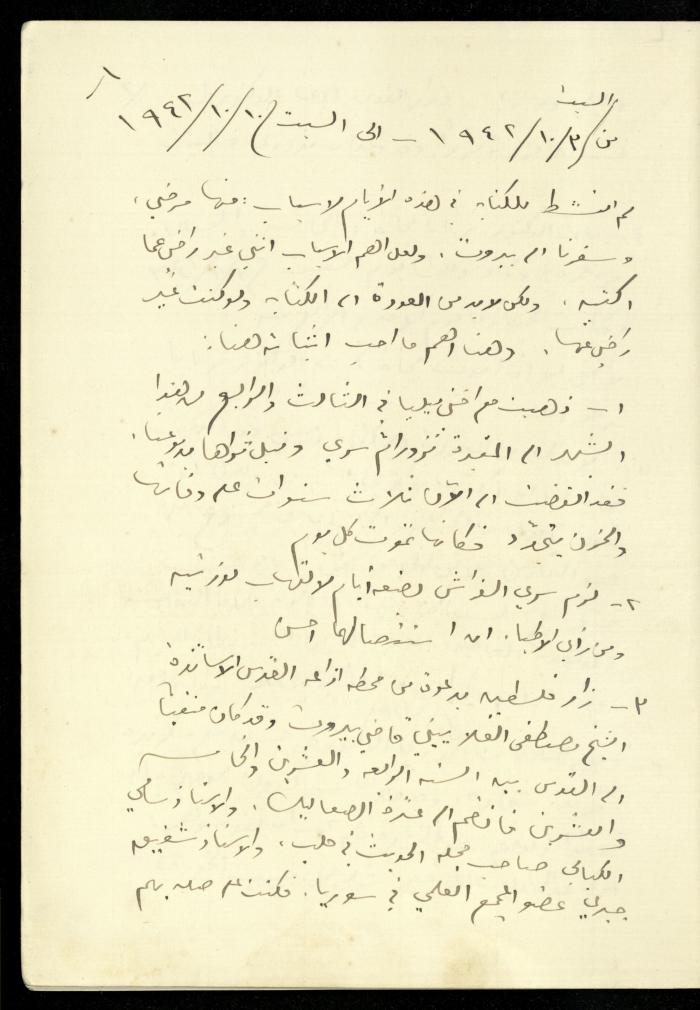 ٨
السبت
من ٣/١٠/١٩٤٢ - الى السبت ١٠/١٠/١٩٤٢
لم انشط للكتابة في هذه الأيام لاسباب: منها مرضي،
وسفرنا الى بيروت. ولعل اهم الاسباب انني غير راض عما
اكتبه. ولكن لابد من العودة الى الكتابة ولو كنت غير
راض عنها. وهنا اهم ما احب اثباته هنا:
١- ذهبت مع اختي ميليا في الثالث والرابع من هذا
الشهر الى المقبرة نزور ام سري ونبل ثراها بدموعنا.
فقد انقضت الى الآن ثلاث سنوات على وفاتها
والحزن يتجدد فكأنها تموت كل يوم
٢- لزم سري الفراش بضعة أيام لالتهاب لوزتيه
ومن رأي الاطباء ان استئصالهما احسن
٣- زار فلسطين بدعوة من محطة اذاعة القدس الاساتذة
الشيخ مصطفى الغلاييني قاضي بيروت وقد كان منفيا
الى القدس بين السنة الرابعة والعشرين والخامسة
والعشرين فانضم الى عشرة الصعاليك. والاستاذ سامي
الكيالي صاحب مجلة الحديث في حلب، والاستاذ شفيق
جبري عضو المجمع العلمي في سوريا. فكنت على صلة بهم